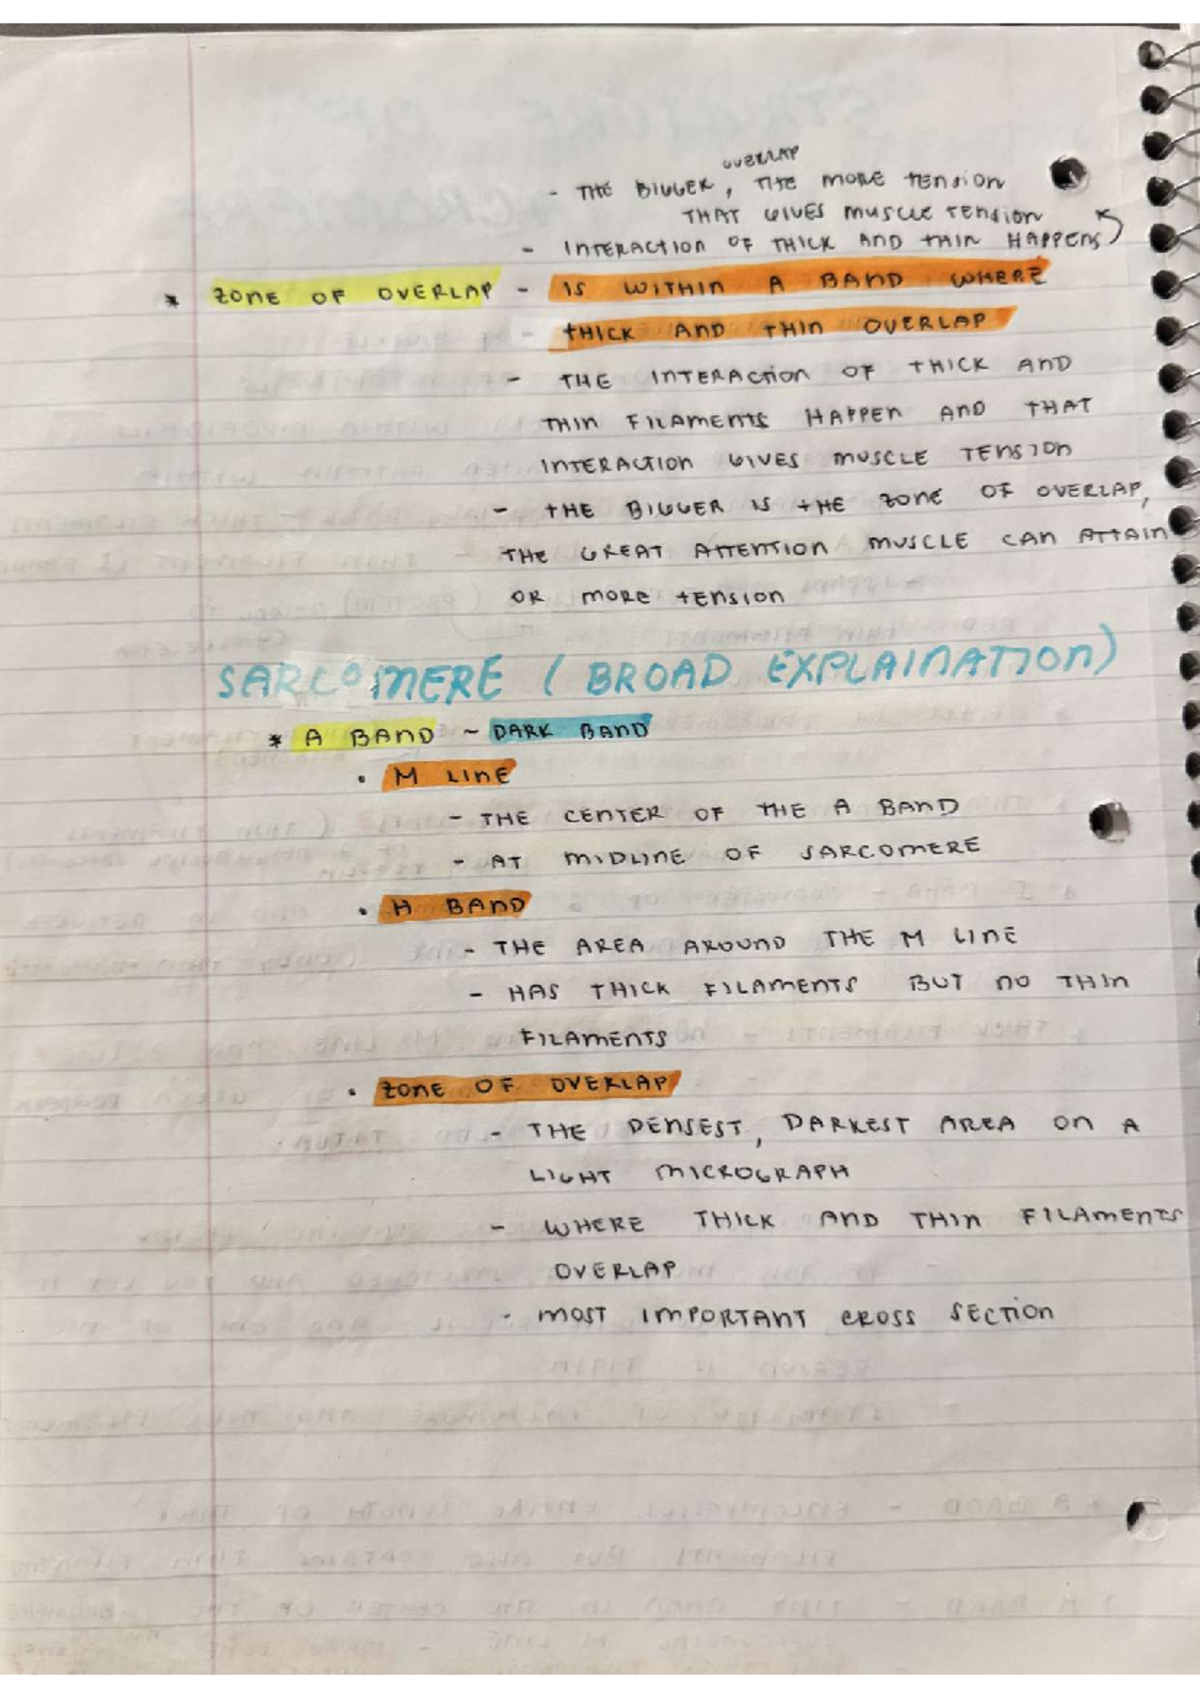 OVERLAP
- THE BIGGER, THE MORE TENSION
THAT GIVES MUSCLE TENSION
- INTERACTION OF THICK AND THIN HAPPENS
* ZONE OF OVERLAP - IS WITHIN A BAND WHERE
- THICK AND THIN OVERLAP
- THE INTERACTION OF THICK AND
THIN FILAMENTS HAPPEN AND THAT
INTERACTION GIVES MUSCLE TENSION
- THE BIGGER IS THE ZONE OF OVERLAP,
THE GREAT ATTENTION MUSCLE CAN ATTAIN
OR MORE TENSION
SARCOMERE (BROAD EXPLAINATION)
* A BAND - DARK BAND
• M LINE
- THE CENTER OF THE A BAND
- AT MIDLINE OF SARCOMERE
• H BAND
- THE AREA AROUND THE M LINE
- HAS THICK FILAMENTS BUT NO THIN
FILAMENTS
• ZONE OF OVERLAP
- THE DENSEST, DARKEST AREA ON A
LIGHT MICROGRAPH
- WHERE THICK AND THIN FILAMENTS
OVERLAP
- MOST IMPORTANT CROSS SECTION